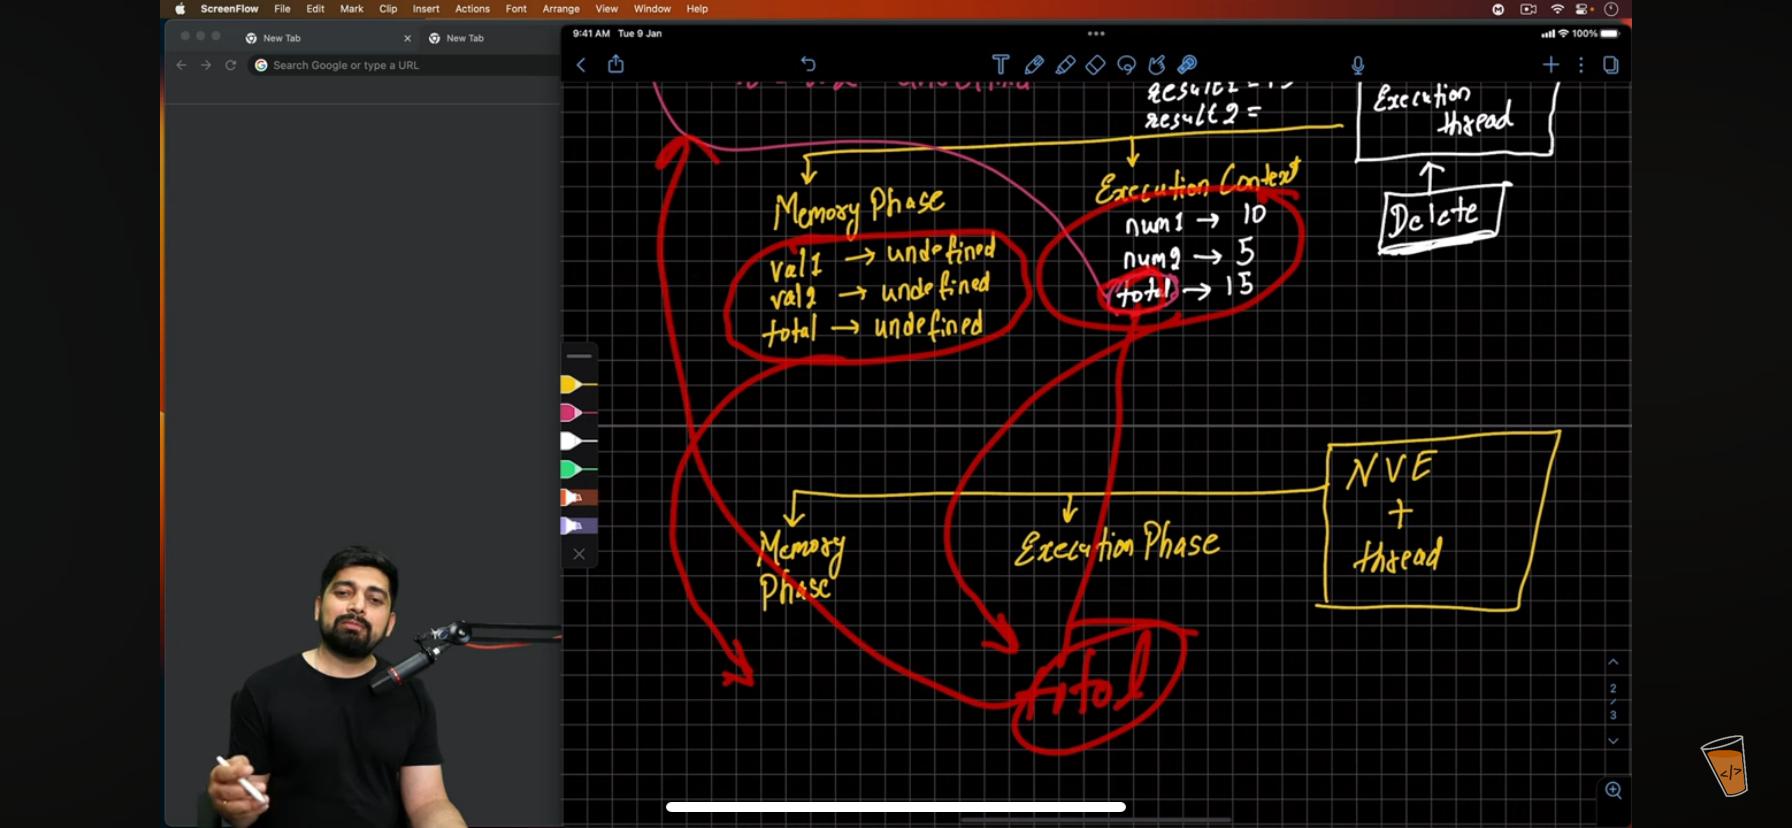 ScreenFlow File Edit Mark Clip Insert Actions Font Arrange View Window Help
New Tab
New Tab
Search Google or type a URL
9:41 AM Tue 9 Jan
100%
result2 =
Execution
thread
Delete
Memory Phase
val1 → undefined
val2 → undefined
total → undefined
Execution Context
num1 → 10
num2 → 5
total → 15
NVE
+
thread
Memory
Phase
Execution Phase
total
2
3
</>